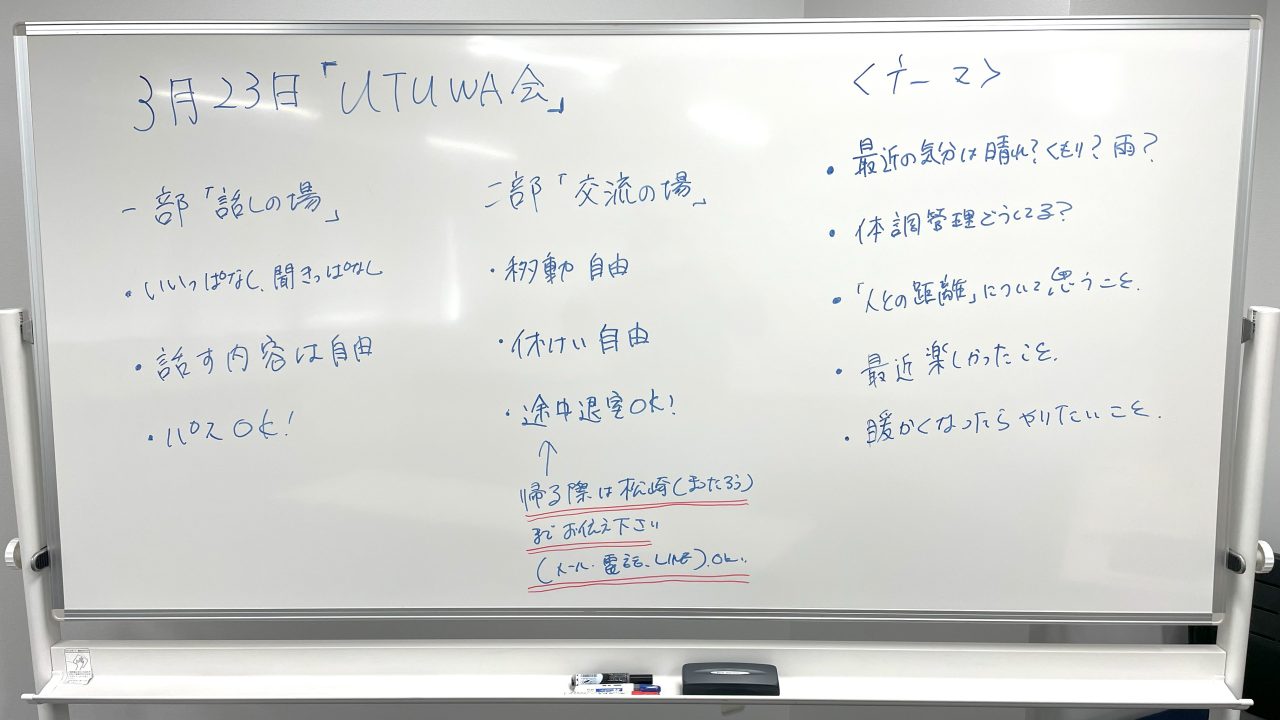 3月23日「UTUWA会」
一部「話しの場」
・いいっぱなし、聞きっぱなし
・話す内容は自由
・パスOK!
二部「交流の場」
・移動自由
・休けい自由
・途中退室OK!
↑
帰る際は松崎(またろう)
までお伝え下さい
(メール・電話、LINE).OK.
<テーマ>
・最近の気分は晴れ?くもり?雨?
・体調管理どうしてる?
・「人との距離」について思うこと.
・最近楽しかったこと.
・暖かくなったらやりたいこと.